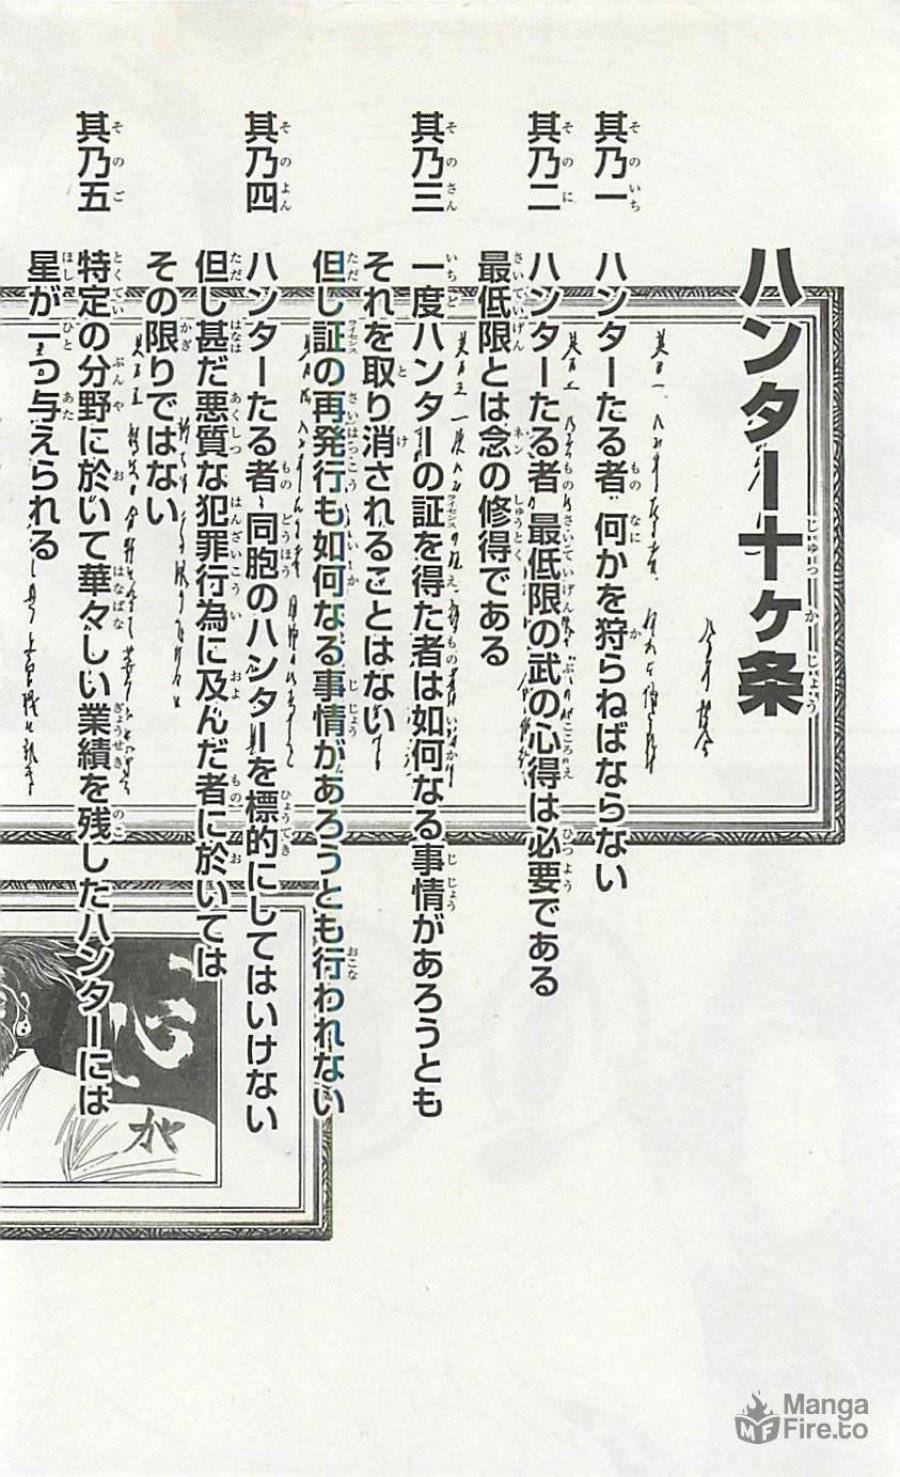 ハンター十ヶ条
其乃一 ハンターたる者 何かを狩らねばならない
其乃二 ハンターたる者 最低限の武の心得は必要である
最低限とは念の修得である
其乃三 一度ハンターの証を得た者は如何なる事情があろうとも
それを取り消されることはない
但し証の再発行も如何なる事情があろうとも行われない
其乃四 ハンターたる者 同胞のハンターを標的にしてはいけない
但し甚だ悪質な犯罪行為に及んだ者に於いては
その限りではない
其乃五 特定の分野に於いて華々しい業績を残したハンターには
星が一つ与えられる
心
が
Manga
Fire.to